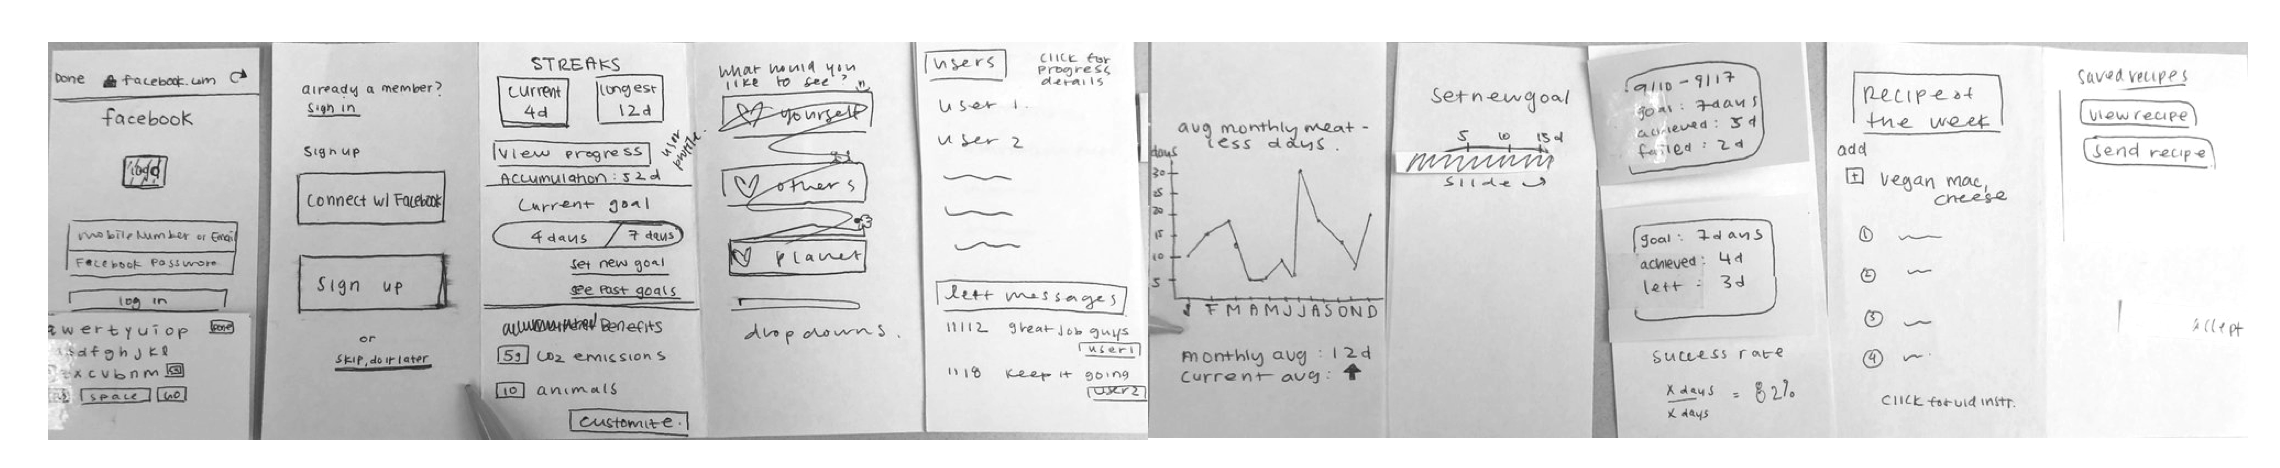 Done facebook.com
facebook
Mobile Number or Email
Facebook Password
log in
qwertyuiop Done
asdfghjkl
zxcvbnm
space GO
already a member?
Sign in
Sign up
Connect w/ Facebook
Sign up
or
skip, do it later
STREAKS
current
4d
longest
12d
View progress
Accumulation: 52d
Current goal
4 days / 7 days
set new goal
see past goals
Benefits
59 CO2 emissions
10 animals
customize.
user
what would you
like to see?
yourself
others
planet
drop downs.
users
click for
progress
details
user 1.
user 2
left messages
11/12 great job guys
user1
11/8 keep it going
user2
avg monthly meat-
less days.
days
30
25
20
15
10
5
J F M A M J J A S O N D
monthly avg: 12d
current avg:
set new goal
5 10 15d
slide
9/10 - 9/17
goal: 7days
achieved: 5d
failed: 2d
goal: 7days
achieved: 4d
left: 3d
success rate
x days
x days
= 82%
Recipe of
the week
add
+ vegan mac,
cheese
1
2
3
4
click for vid instr.
saved recipes
view recipe
send recipe
accept